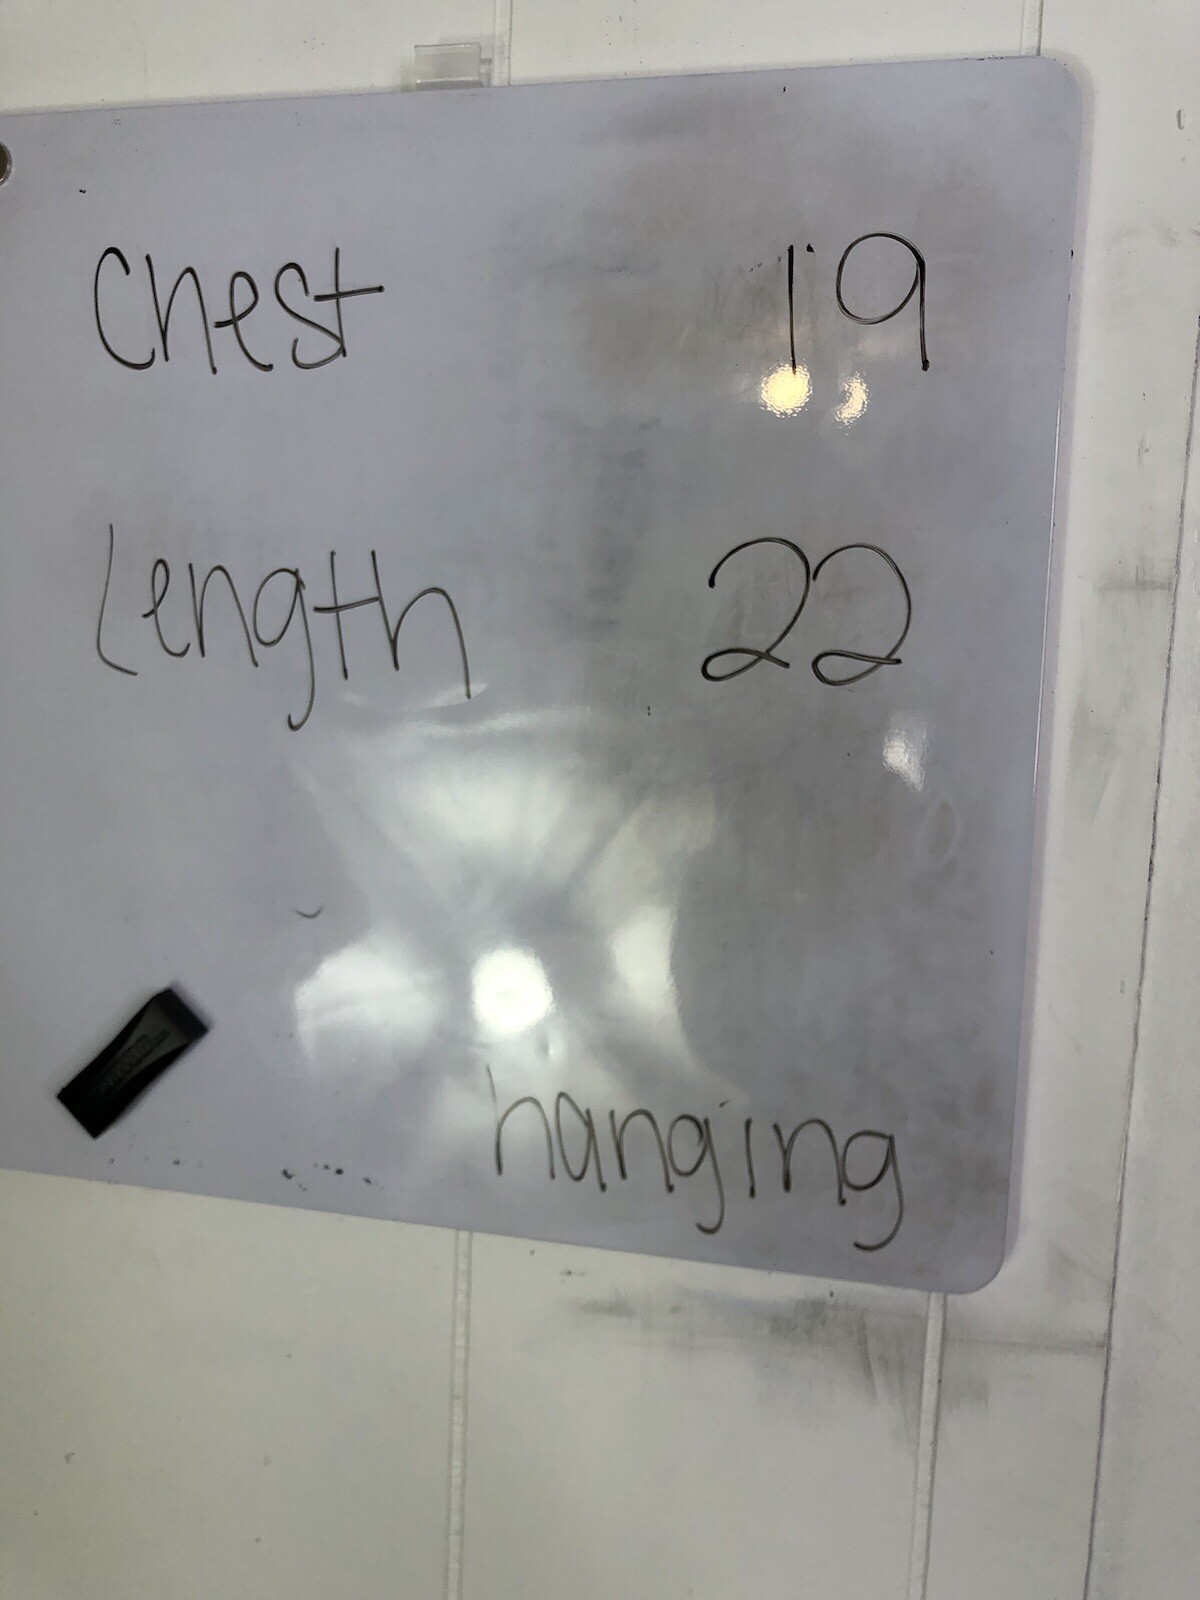 Chest 19
Length 22
hanging